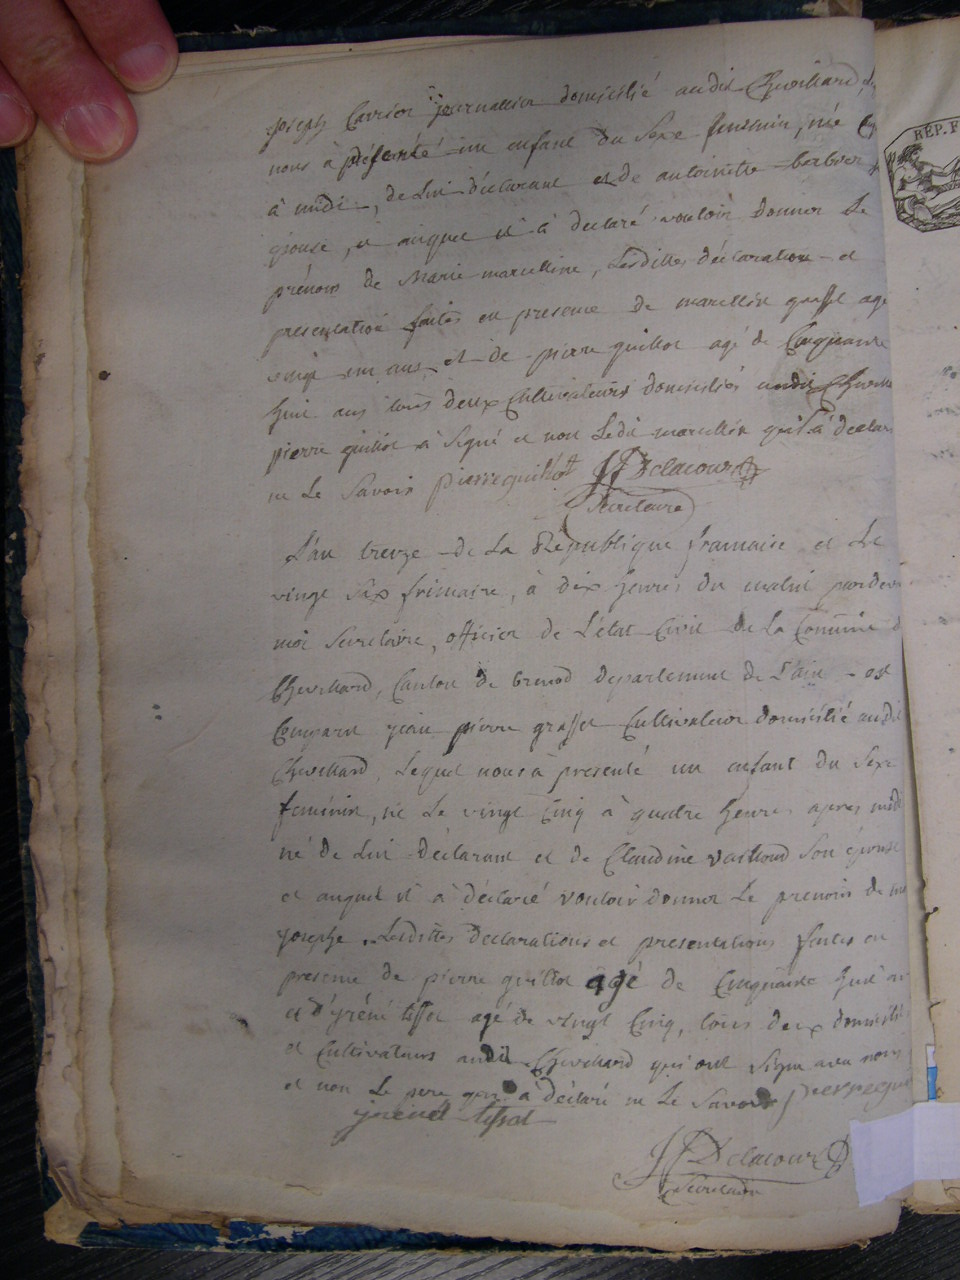 joseph Carrier journallier domicilié audit Chevillard,
nous à présenté un enfant du Sexe feminin, née
à midi, de Lui déclarant et de antoinette barbier
épouse, et auquel il à declaré vouloir donner Le
prénom de Marie marcelline, Lesdittes déclaration et
presentation faites en presence de marcellin grasset agé
vingt un ans et de pierre guillot agé de Cinquante
huit ans tous deux Cultivateurs domiciliés audit
pierre guillot à Signé et non Ledit marcellin qui à déclaré
ne Le Savoir pierre guillot JJ Delacour
Secretaire
L'an treize de La République francaise et Le
vingt Six frimaire, à dix heures du matin pardevant
moi Secretaire, officier de L'état Civil de La Commune
Chevillard, Canton de brenod departement de L'ain est
Comparu jean pierre grasset Cultivateur domicilié audit
Chevillard, Lequel nous à presenté un enfant du Sexe
feminin, né Le vingt Cinq à quatre heures apres midi
né de Lui déclarant et de Claudine Son épouse
et auquel il à déclaré vouloir donner Le prenom de
josephe. Lesdittes declarations et presentations faites en
presence de pierre guillot agé de Cinquante huit ans
et d'yréné tissot agé de vingt Cinq, tous deux domiciliés
et Cultivateurs audit Chevillard qui ont Signé avec nous
et non Le pere qui à déclaré ne Le Savoir pierre
tissot
JJ Delacour
Secretaire
REP. F